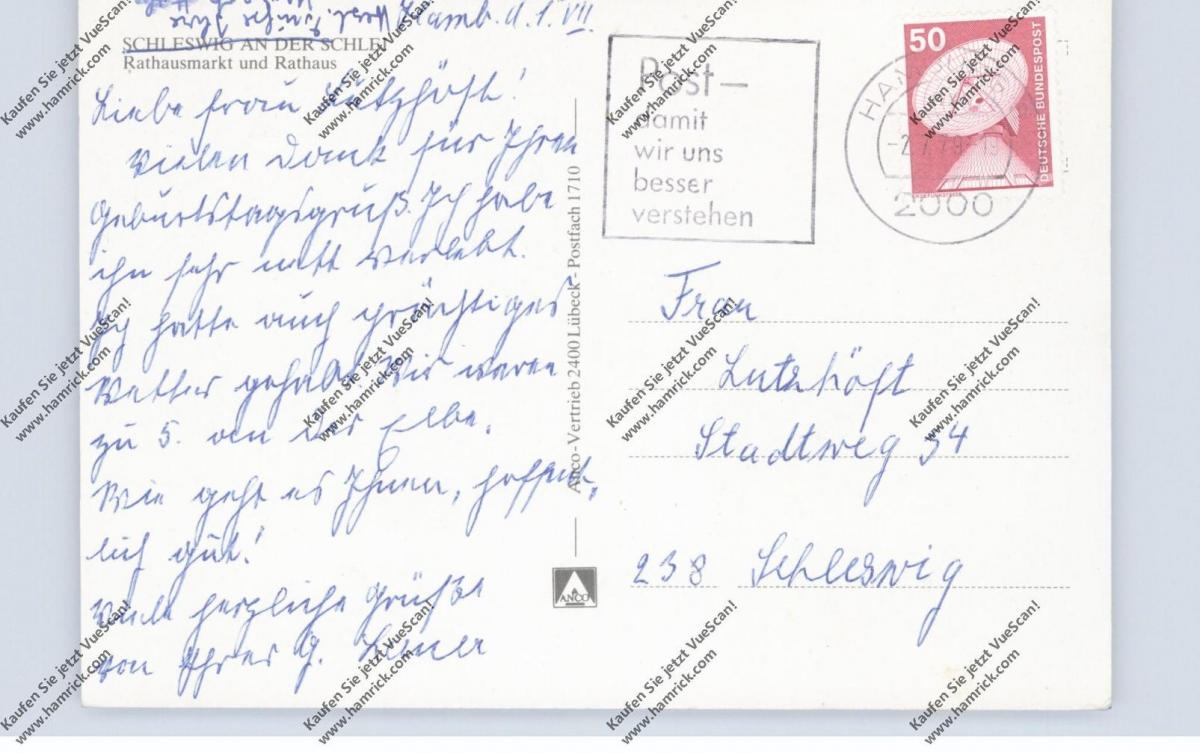 Hamb. d. 1. VII.
SCHLESWIG AN DER SCHLEI
Rathausmarkt und Rathaus
Liebe Frau Lutzhöft!
Vielen Dank für Ihren
Geburtstagsgruß. Ich habe
ihn sehr nett verlebt.
Ich hatte auch prächtiges
Wetter gehabt. Wir waren
zu 5. an der Elbe.
Wie geht es Ihnen, hoffent-
lich gut!
Viele herzliche Grüße
von Ihrer G.
Anco-Vertrieb 2400 Lübeck - Postfach 1710
ANCO
Post–
damit
wir uns
besser
verstehen
2000
50
DEUTSCHE BUNDESPOST
Frau
Lutzhöft
Stadtweg 54
238 Schleswig
Kaufen Sie jetzt VueScan!
www.hamrick.com